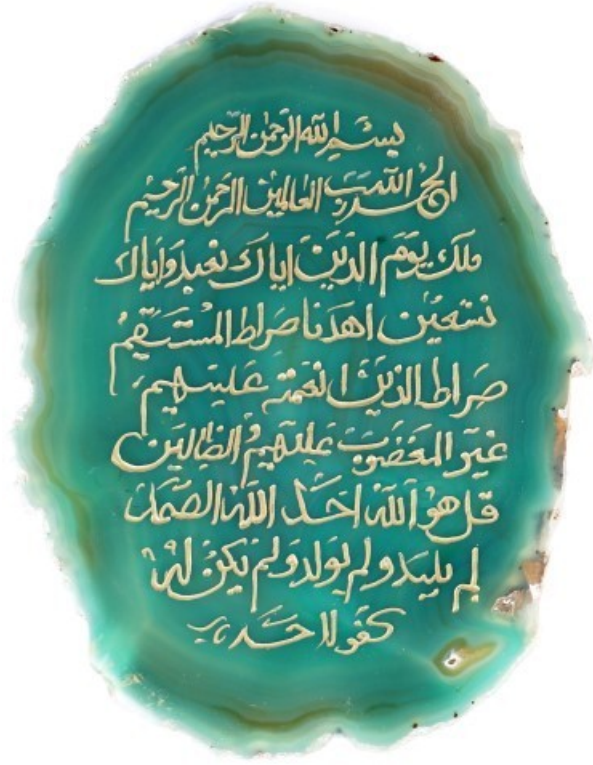 بسم الله الرحمن الرحيم
الحمد لله رب العالمين الرحمن الرحيم
ملك يوم الدين اياك نعبد واياك
نستعين اهدنا صراط المستقيم
صراط الذين انعمته عليهم
غير المغضوب عليهم و الظالين
قل هو الله احد الله الصمد
لم يليد ولم يولد ولم يكن له
كفوا احد